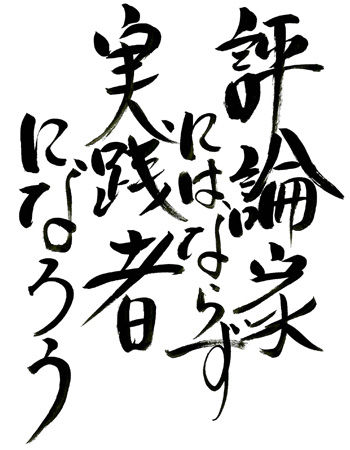 評論家
にはならず
実践者
になろう